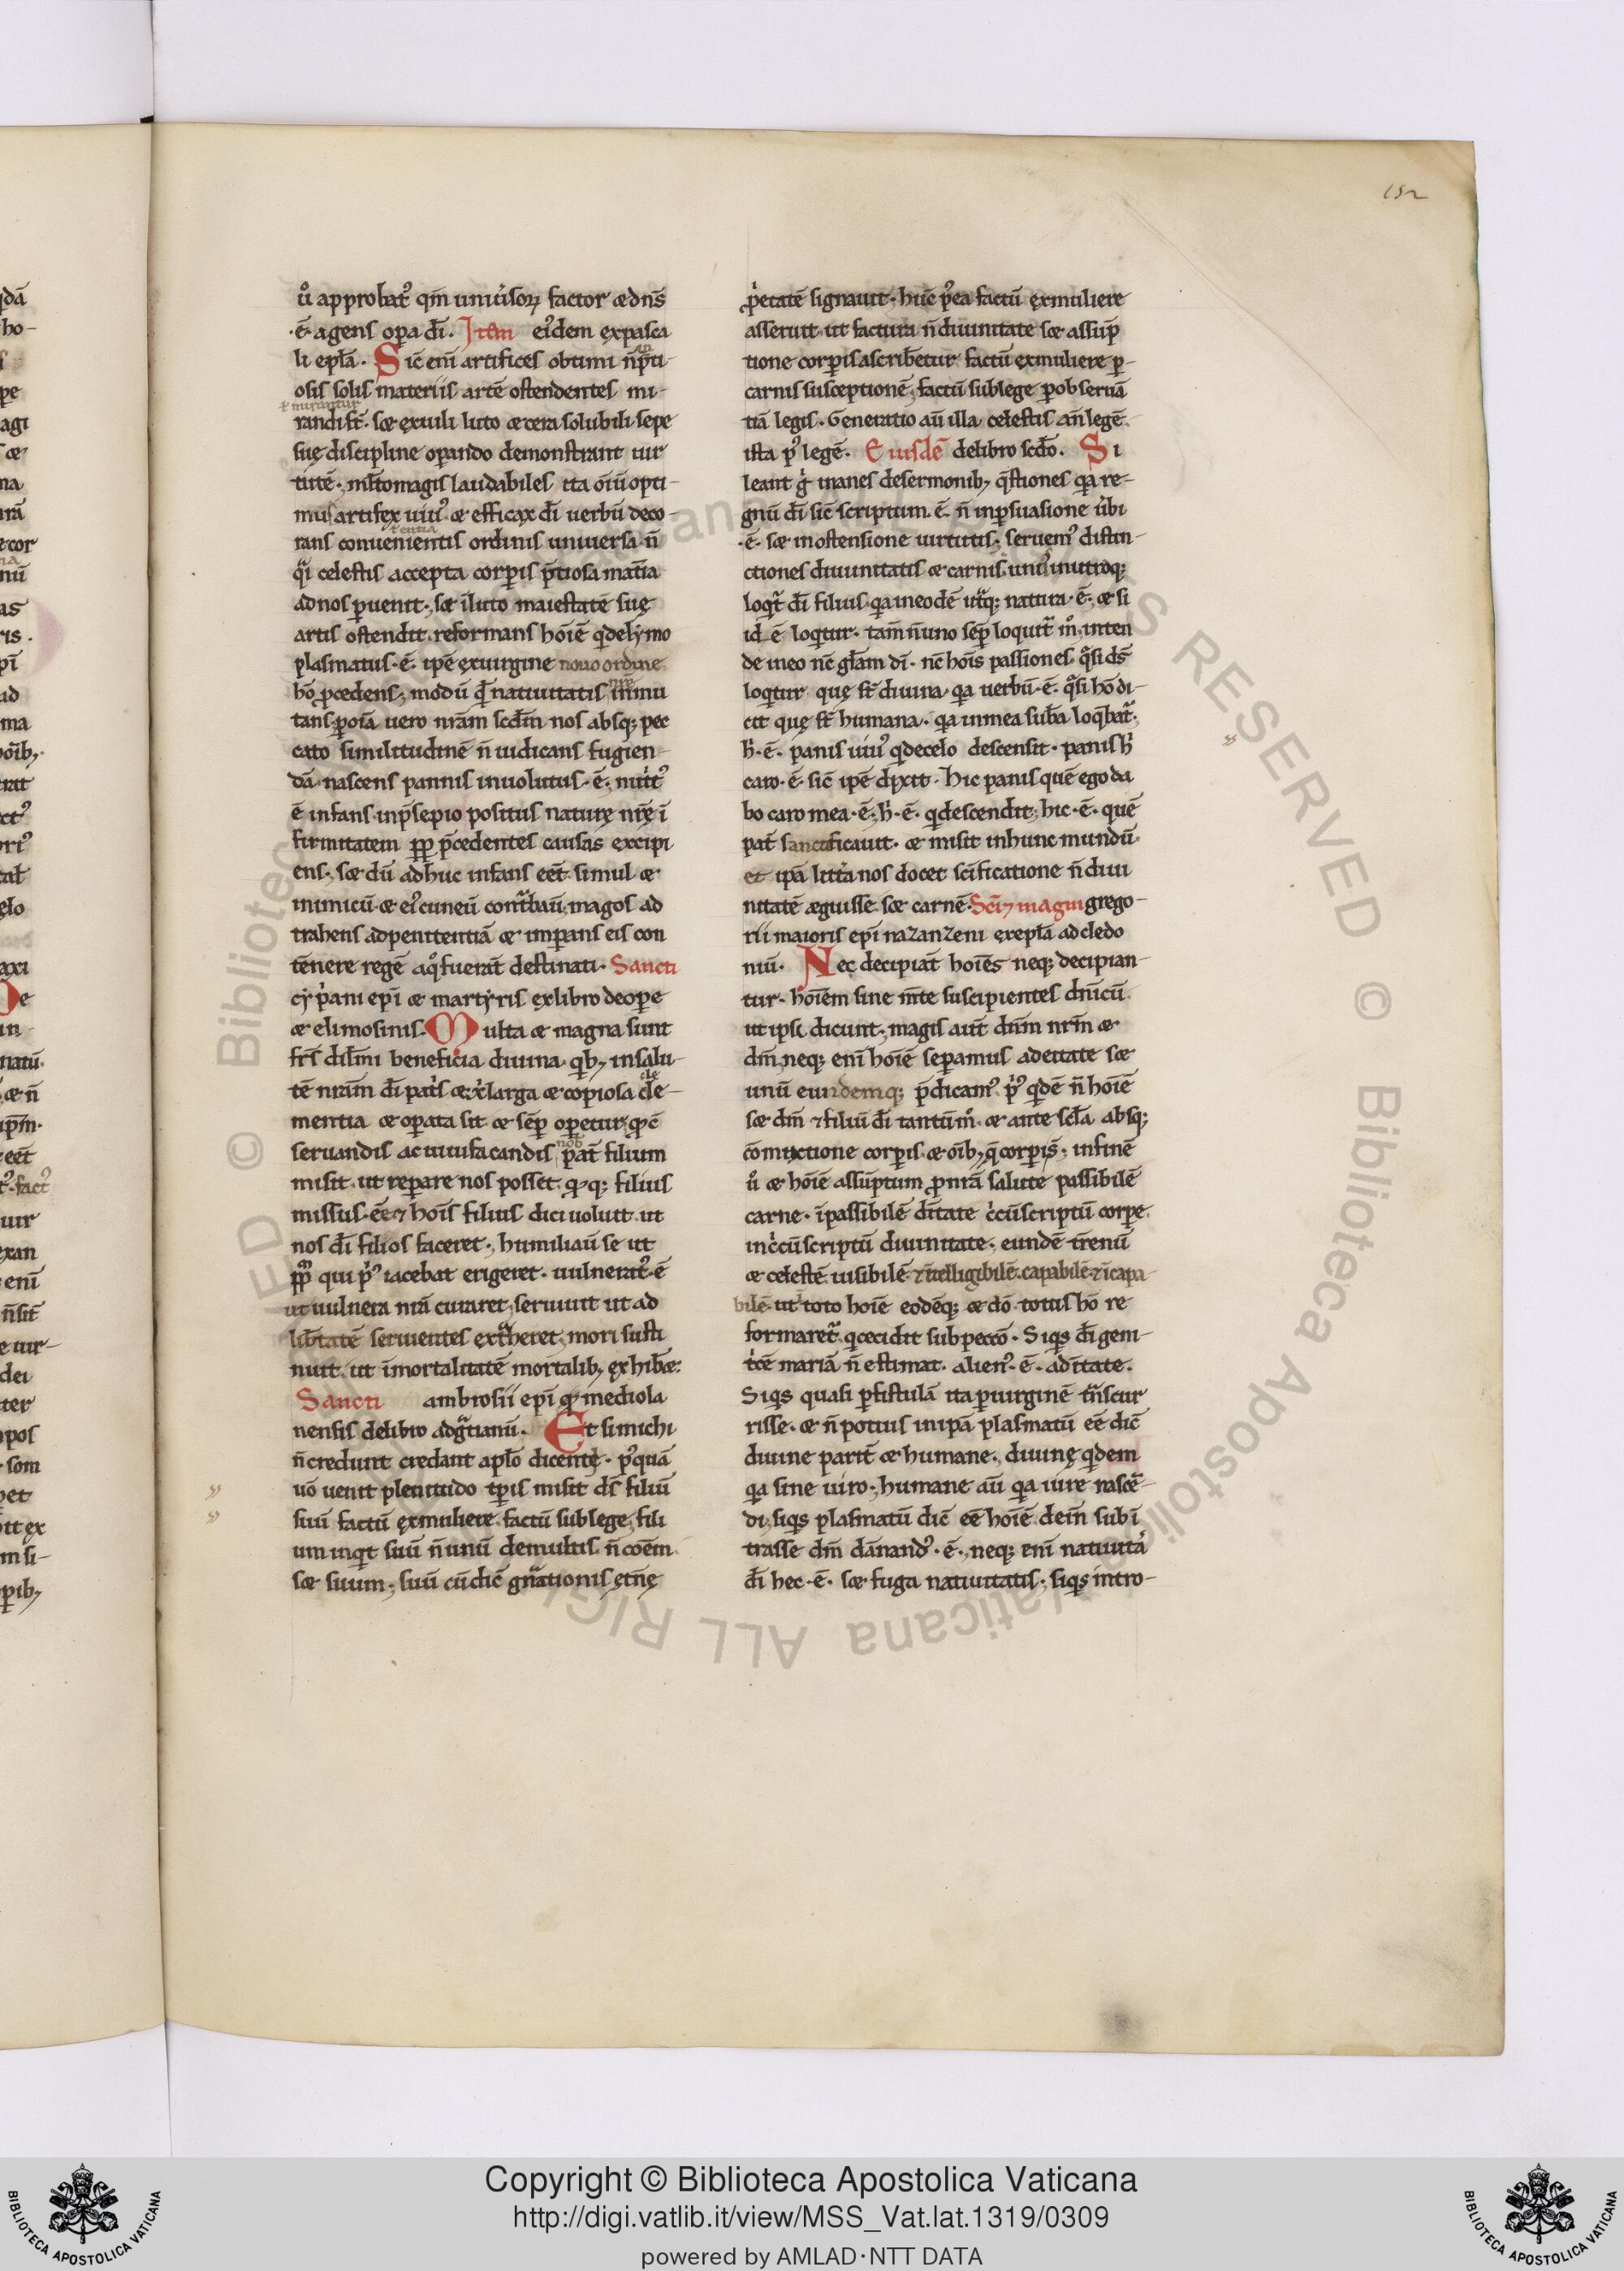 152
ů approbat᷒ qm̄ uniu̾soꝝ factor ædn̄s
·ē· agens oꝑa dī. Item ei᷒dem expasca
li epl̄a. Sic̄ eni artifices obtimi n̄p̄ti-
osis solis materiis artē ostendentes mi-
randi sт̄. sæ exuili luto æcera solubili sepe
suę discipline oꝑando demonstrant uir
tutē. ml̄tomagis laudabiles ita oīū opti-
mus artifex uiu᷒ æ efficax dī uerbū deco-
rans conuenientis ordinis uniuersa n̄
qͥ celestis accepta corꝑis p̄tiosa mat̄ia
adnos ꝑuenit., sæ īluto maiestatē suę
artis ostendit. reformans hoīē qdelymo
plasmatus·ē· ipē exuirgine nouo ordine
hō ꝓcedens., modū qͥ natiuitatis inmu
tans. ꝑoīa uero nr̄am scd̄m nos absq; pec
cato similitudinē n̄ iudicans fugien-
dā. nascens pannis inuolutus·ē· nut̾t᷒
ē infans. inp̄sepio positus naturę nr̄ę ī
firmitatem ꝓp p̄cedentes causas excipi
ens., sæ dū adhuc infans eēt simul æ
inimicū æ ei᷒cuneū contͣbaū., magos ad
trahens adpenitentiā æ imꝑans eis con
tēnere regē aqͦ fuerāt destinati. Sancti
cyp̾ani epī æ martyris exlibro deope
æ elimosinis. Multa æ magna sunt
fr̄s dil̄mi beneficia diuina. qb; insalu-
tē nr̄am dī pat̾s æ x̾ larga æ copiosa cle-
mentia æ oꝑata sit æ sēꝑ oꝑetur. qc̄
seruandis ac uiuificandis nob̄ pat̄ filium
misit. ut reꝑare nos posset. qͣq; filius
missus·eē⁊ hoīs filius dici uoluit. ut
nos dī filios faceret., humiliaū se ut
pp̄l̄m qui p̾᷒ iacebat erigeret. uulnerat᷒·ē
ut uulnera nr̄a curaret., seruiuit ut ad
lib̄tatē seruientes extͣheret., mori susti
nuit. ut īmortalitatē mortalib; exhib̄æ:
Sancti ambrosii epī qͣ mediola
nensis delibro adgͣtianū. Et simichi
n̄ credunt credant apl̄o dicentę. p᷒quā
uō uenit plenitudo tp̄is misit ds̄ filiū
suū factū exmuliere. factū sublege., fili
um inqͥt suū n̄ unū demultis. n̄ coēm.
sæ suum., suū cū dic̄ gnͣationis ęt̄nę
ꝓp̾etatē signauit. huc̄ p᷒ea factū exmuliere
asseruit. ut factura n̄ diuinitate sæ assūp
tione corꝑis ascriberetur. factū exmuliere ꝑ-
carnis susceptionē., factū sublege ꝑobseruā
tiā legis. Generatio aū illa celestis an̄ legē
ista p᷒ legē. Eiusdē delibro scd̄o. Si
leant g̾ inanes desermonib; qͣstiones. qͣa re-
gnū dī sic̄ scriptum·ē· n̄ inꝑsuasione u̾bi
·ē· sæ inostensione uirtutis., seruem᷒ distin-
ctiones diuinitatis æ carnis. un᷒ inutroq;
loqͥt̄ dī filius. qͣa ineodē ut̾q; natura·ē·., æ si
id·ē· loqͥtur. tam̄ n̄uno sēꝑ loquit̄ mͦ., inten
de ineo nc̄ gl̄am dī. nc̄ hoīs passiones. qͣsi ds̄
loqͥtur quę sт̄ diuina. qͣa uerbū·ē· qͣsi hō di-
cit quę sт̄ humana. qͣa inmea sub̄a loqͥbat̄.
h̾·ē· panis uiu᷒ qdecelo descensit. panis h̾
caro·ē· sic̄ ipē dixit. hic panis quē ego da
bo caro mea·ē·., h̾·ē· qdescendit., hic·ē· quē
pat̄ sanctificauit. æ misit inhunc mundū.
et ipā litt̾a nos docet scīficatione n̄ diui
nitatē æguisse. sæ carnē. Scī⁊ magni grego-
rii maioris epī nazanzeni exepl̄a adcledo
niū. Nec decipiāt hoīēs neq; decipian-
tur. hoīēm sine m̄te suscipientes dn̄icū.
ut ipsi dicunt., magis aut̄ dnm̄ nrm̄ æ
dm̄., neq; enī hoīē seꝑamus adeitate sæ
unū eundemq; p̄dicam᷒. p̾᷒ qͥdē n̄ hoīē
sæ dm̄ ⁊filiū dī tantūm̾. æ ante scl̄a absq;
cōniūctione corꝑis. æ oīb; qͣcorꝑis., infinē
ů æ hoīē assūptum ꝓnr̄ā salutē passibilē
carne. īpassibilē d̄itate c̾cūscriptū corpe.
inc̾cūscriptū diuinitate., eundē t̄renū
æ celestē. uisibilē ⁊ītelligibilē. capabilē ⁊īcapa-
bilē. ut̾ toto hoīē eodēq; æ dō totus hō re
formaret̄. qcecidit subpecc̄o. Siqͥs dī geni-
t̾cē mariā n̄ estimat. alien᷒·ē· ad̄itate.
Siqͥs quasi ꝑfistulā ita ꝑuirginē tͣnscur
risse. æ n̄ potius inipā plasmatū eē dic̄
diuine parit̄ æ humane., diuinę qͥdem
qͣa sine uiro., humane aū qͣa iure nascē-
di., siqͥs plasmatū dic̄ eē hoīē. dein̄ subī
trasse dm̄ dānand᷒·ē·., neq; enī natiuita̾
dī hec·ē· sæ fuga natiuitatis., siqͥs intro-
Copyright © Biblioteca Apostolica Vaticana
http://digi.vatlib.it/view/MSS_Vat.lat.1319/0309
powered by AMLAD·NTT DATA